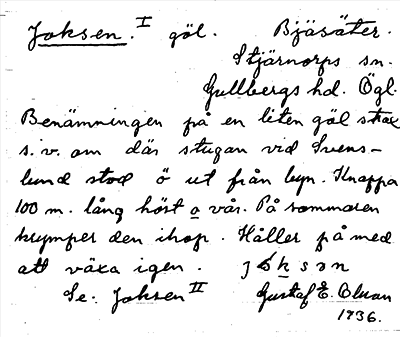 Joksen.I göl. Bjäsäter.
Stjärnorps sn.
Gullbergs hd. Ögl.
Benämningen på en liten göl strax
s.v. om där stugan vid Svens-
lund stod ö ut från byn. Knappa
100 m. lång höst o vår. På sommaren
krymper den ihop. Håller på med
att växa igen.
Se: Joksen II Gustaf E. Olsson
1936.